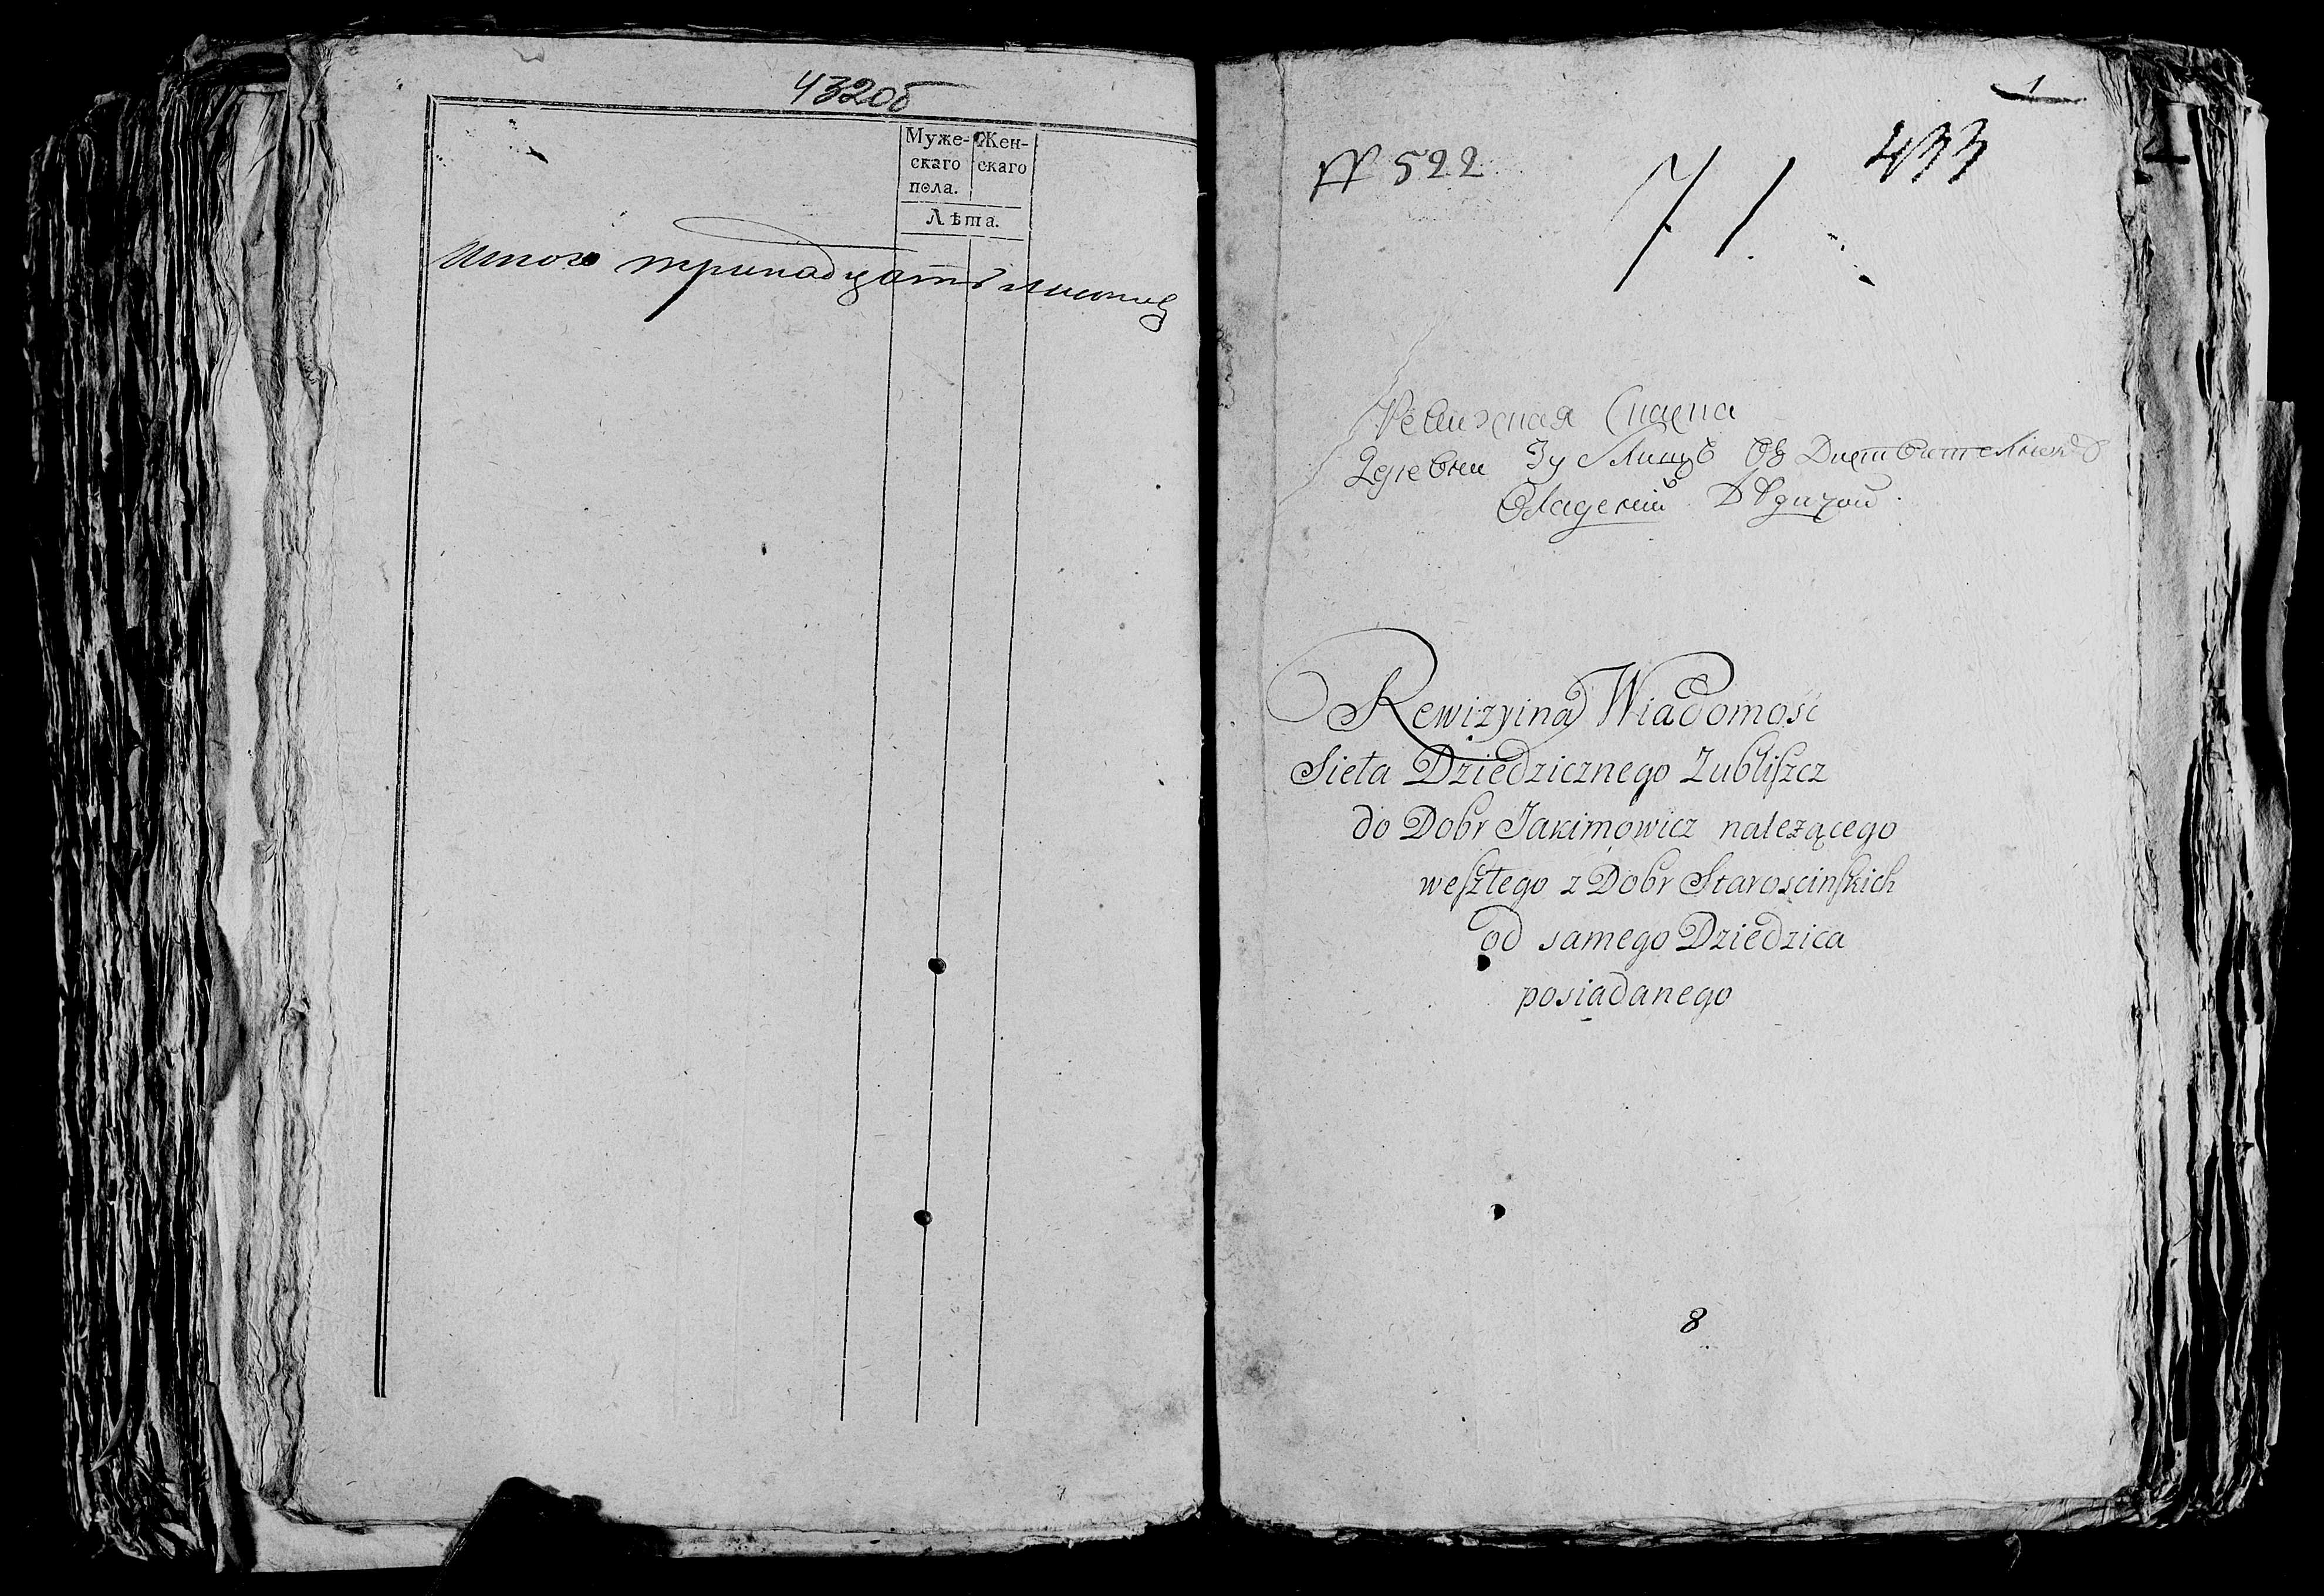 432об
Муже-
скаго
пола.
Жен-
скаго
Лѣта.
Итого тринадцать
1
433
№ 522
71.
Ревизкая Сказка
Деревни Зублищъ Въ
Владении
Rewizyina Wiadomosc
Sieła Dziedzicznego Zubliszcz
do Dobr Jakimowicz należącego
weszłego z Dobr Staroscinskich
od samego Dziedzica
posiadanego
8